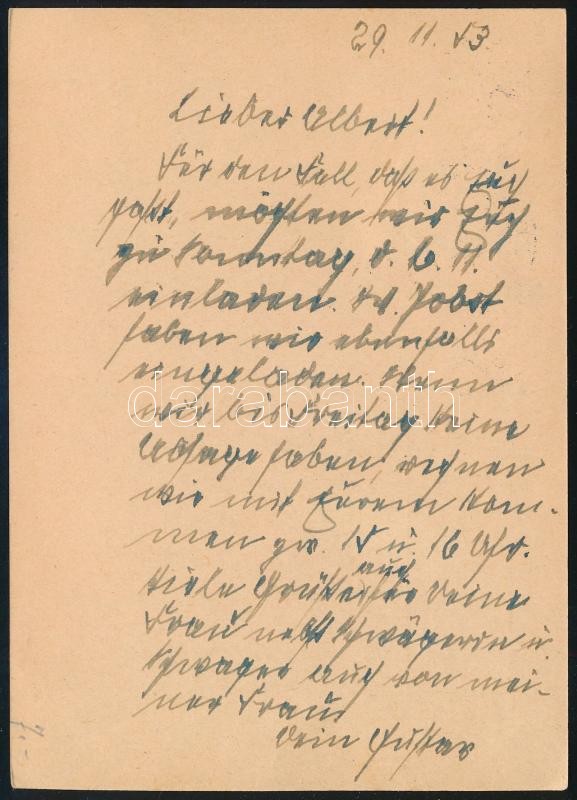 29. 11. 53.
Lieber Albert!
Für den Fall, daß es Euch
paßt, möchten wir Euch
zu Sonntag, d. 6. 11.
einladen. Dr. Jobst
haben wir ebenfalls
eingeladen. Wenn
wir bis Freitag keine
Absage haben, rechnen
wir mit Eurem Kom-
men zw. 15 u. 16 Uhr.
Viele Grüße auch für Deine
Frau nebst Schwägerin u.
Schwager auch von mei-
ner Frau
Dein Gustav
darabanth